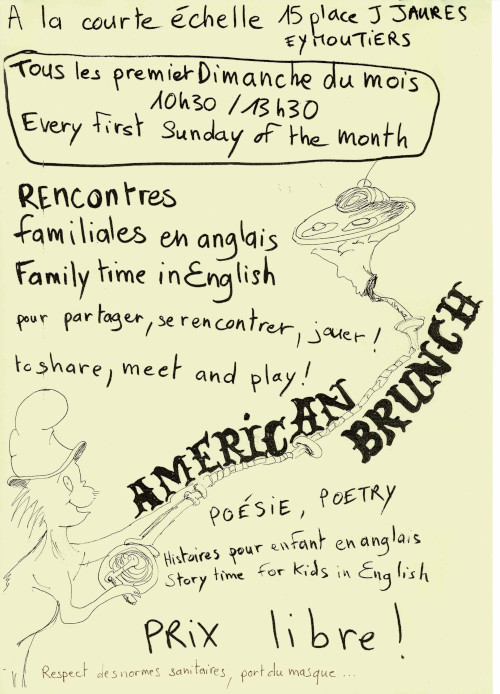 A la courte échelle 15 place J JAURES
EYMOUTIERS
Tous les premier Dimanche du mois
10h30 / 13h30
Every first Sunday of the month
RENcontres
familiales en anglais
Family time in English
pour partager, se rencontrer, jouer !
to share, meet and play !
AMERICAN
BRUNCH
POÉSIE, POETRY
Histoires pour enfant en anglais
Story time for kids in English
PRIX libre !
Respect des normes sanitaires, port du masque ...